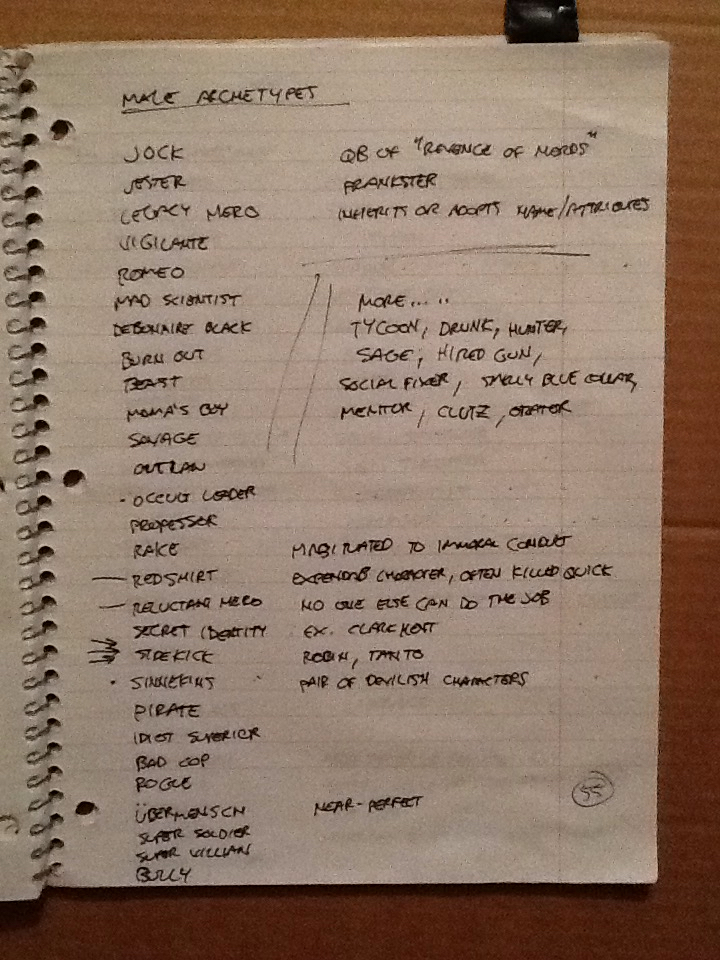 MALE ARCHETYPES
JOCK QB OF "REVENGE OF NERDS"
JESTER PRANKSTER
LEGACY HERO INHERITS OR ADOPTS NAME/ATTRIBUTES
VIGILANTE
ROMEO
MAD SCIENTIST MORE.....
DEBONAIRE BLACK TYCOON, DRUNK, HUNTER,
BURN OUT SAGE, HIRED GUN,
BEAST SOCIAL FIXER, SMELLY BLUE COLLAR,
MOMA'S BOY MENTOR, CLUTZ, ORATER
SAVAGE
OUTLAW
OCCULT LEADER
PROFESSOR
RAKE HABITUATED TO IMMORAL CONDUCT
REDSHIRT CHARACTER, OFTEN KILLED QUICK
RELUCTANT HERO NO ONE ELSE CAN DO THE JOB
SECRET IDENTITY EX. CLARK KENT
SIDEKICK ROBIN, TANTO
PAIR OF DEVILISH CHARACTERS
PIRATE
IDIOT SUPERIOR
BAD COP
ROGUE
ÜBERMENSCH NEAR-PERFECT
SUPER SOLDIER
SUPER VILLIAN
BULLY
55